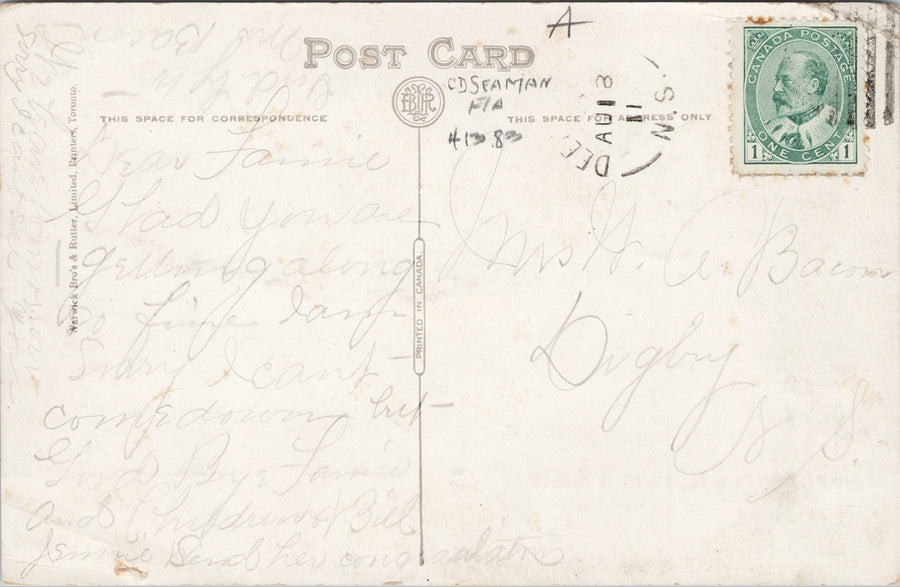 POST CARD
A
CDSEAMAN
FIA
41383
THIS SPACE FOR CORRESPONDENCE
THIS SPACE FOR ADDRESS ONLY
DEC
AU 18
11
N.S.
CANADA POSTAGE
ONE CENT
1 1
Warwick Bro's & Rutter, Limited, Printers, Toronto.
PRINTED IN CANADA.
Dear Fannie
Glad you are
getting along
so fine I am
Sorry I cant
come down but
Good Bye Fannie
and Children & Bill
Jennie Send her congraulations
Mrs Bacon
Mrs W. A. Bacon
Digby
N S